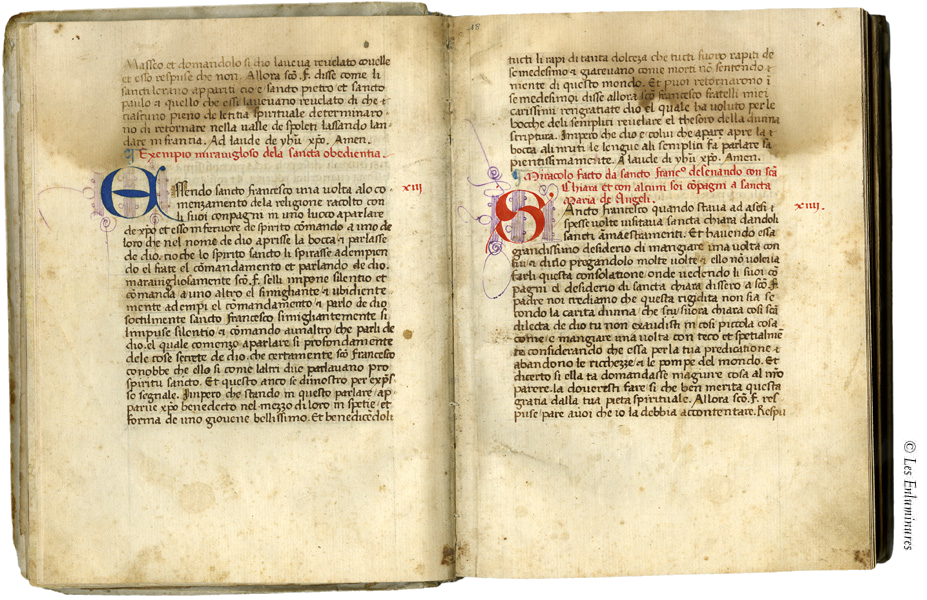 Masseo et domandolo si dio laveva revelato covelle
et esso respuse che non. Allora scō. F. disse come li
sancti lerano appariti cio e sancto pietro et sancto
paulo et quello che essi lavevano revelato di che et
ciascuno pieno de letitia spirituale determinaro
no di retornare nella valle de spoleti lassando lan
dare in francia. Ad laude de yhū xpō. Amen.
Exempio miravigloso dela sancta obedientia.
Essendo sancto francesco una volta alo co
xiii
menzamento dela religione racolto con
li suoi conpagni in uno luoco aparlare
de xpō et esso in fervore de spirito comando a uno de
loro che nel nome de dio aprisse la bocca et parlasse
de dio. cioche lo spirito sancto li spirasse adempien
do el frate el cōmandamento et parlando de dio.
maravigliosamente scō. F. selli impone silentio et
cōmanda a uno altro el simighante et ubidiente
mente adempi el comandamento et parlo de dio
soctilmente sancto francesco simighantemente li
impuse silentio et cōmando aunaltro che parli de
dio. el quale comenzo aparlare si profondamente
dele cose secrete de dio. che certamente scō francesco
conobbe che ello si come laltri due parlavano pro
spiritu sancto. Et questo anco se dimostro per expss
se segnale. Impero che stando in questo parlare ap
parve xpō benedecto nel mezzo di loro in spetie et
forma de uno giovene bellissimo. Et benedicēdoli
18
tucti li rapi di tanta dolceza che tucti fuoro rapiti de
se medesimo et giacevano come morti nō sentendo
mente di questo mondo. Et puoi retornarono i
se medesimo disse allora scō francesco fratelli miei
carissimi rengratiate dio el quale ha voluto per le
bocche deli sempluci revelare el thesoro della divina
scriptura. Impero che dio e colui che apare apre la
bocca ali muti le lengue ali semplici fa parlare sa
pientissimamente. A laude di yhū xpō. Amen.
Miracolo facto da sancto francº delenando con scā
Chiara et con alcuni soi cōpagni a sancta
Maria de Angeli.
xiiii.
Sancto francesco quando stava ad asesi et
spesse volte visitava sancta chiara dandoli
sancti āmaestramenti. Et havendo essa
grandissimo desiderio di mangiare una volta con
lui et dicto pregandolo molte volte et ello nō voleva
farli questa consolatione onde vedendo li suoi cō
pagni el desiderio di sancta chiara dissero a scō. F.
padre noi crediamo che questa rigidita non sia se
condo la carita divina che scū suora chiara cosi scā
dilecta de dio tu non exaudisti in cosi piccola cosa
come e mangiare una volta con teco et spetialmē
te considerando che essa per la tua predicatione et
abandono le richezze et le pompe del mondo. Et
dicerto si ella ta domandasse magiure cosa al nrō
parere. la doveresti fare si che ben merita questa
gratia dalla tua pieta spirituale. Allora scō. F. res
puse pare avoi che io la debbia accontentare. Respu
© Les Enluminures